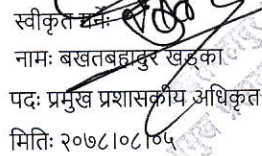 स्वीकृत गर्नेः
नामः बखतबहादुर खड्का
पदः प्रमुख प्रशासकीय अधिकृत
मितिः २०७८।०८।०५